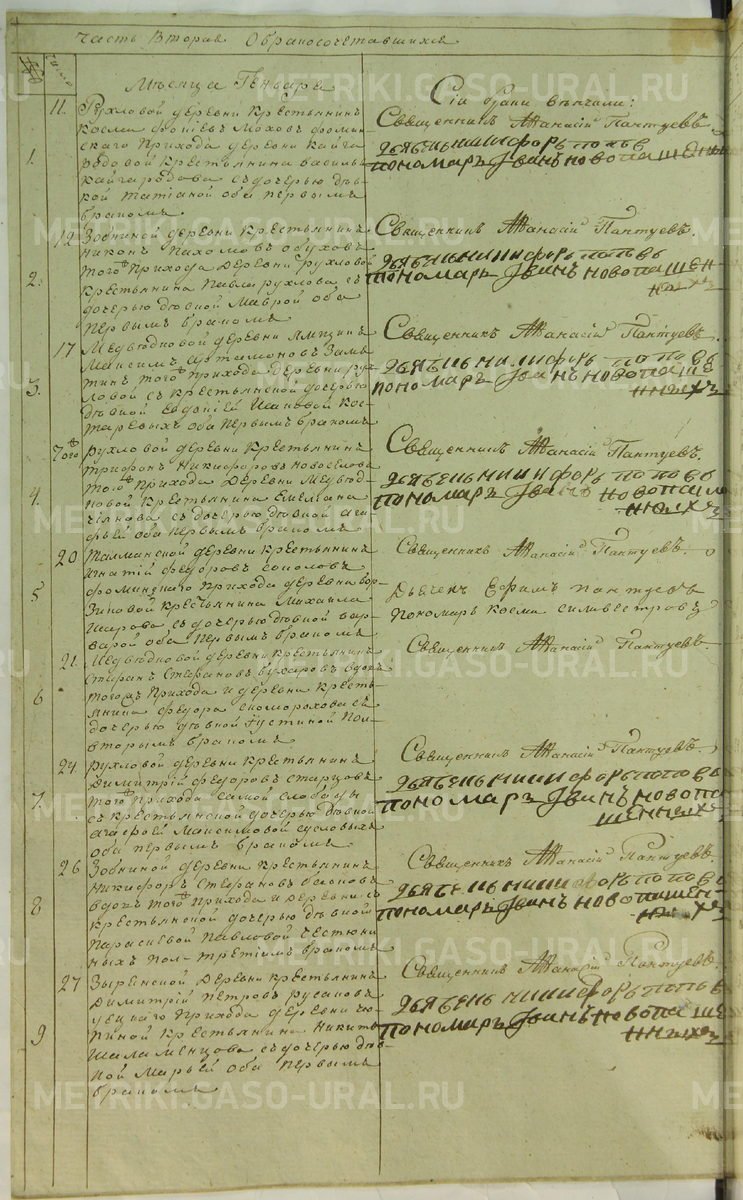 Часть Вторая. О бракосочетавшихся
Число
Месяца Генваря
Сiи браки венчали:
11. Рухловой деревни крестьянинъ
Косма Мохов Фомин-
скаго прихода деревни Кайга-
1. родовой крестьянина Василья
Кайгародова съ дочерью дѣв-
кой Татiаной оба первымъ
бракомъ
Священникъ Аθанасiй Пантуевъ.
дьячекъ никифоръ поповъ
пономарь Iванъ новопашенныхъ
12 Зобниной деревни крестьянинъ
Никонъ Пахомовъ Обуховъ
того прихода деревни Рухловой
2. крестьянина Павла Рухлова съ
дочерью дѣвкой Маврой оба
первымъ бракомъ
Священникъ Аθанасiй Пантуевъ.
дьячекъ никифоръ поповъ
пономарь Iванъ новопашен-
ныхъ
17 Медведковой деревни ямщикъ
Максимъ Артамоновъ Замя-
тинъ того прихода деревни Рух-
3. ловой съ крестьянской дочерью
дѣвкой Евдокiей Ивановой Кос-
таревыхъ оба первымъ бракомъ
Священникъ Аθанасiй Пантуевъ
дьячекъ никифоръ поповъ
пономарь Iванъ новопаше
нныхъ
Того Рухловой деревни крестьянинъ
Трифонъ Никифоровъ
того прихода деревни Медвед-
4. ковой крестьянина Емельяна
съ дочерью дѣвкой Ага-
фьей оба первымъ бракомъ
Священникъ Аθанасiй Пантуевъ.
дьячекъ никифоръ поповъ
пономарь Iванъ новопаше
нныхъ
20 Талманской деревни крестьянинъ
Игнатiй Федоровъ Соколовъ
Фоминскаго прихода деревни
5 крестьянина Михаила
съ дочерью дѣвкой Вар-
варой оба первымъ бракомъ
Священникъ Аθанасiй Пантуевъ.
Дьячекъ Ефимъ Пантуевъ
Пономарь Косма Силвестровъ
21. Медведковой деревни крестьянинъ
Стефанъ Стефановъ Бухаровъ вдовъ
тогожъ прихода и деревни кресть-
6 янина Федора Скоморохова съ
дочерью дѣвкой Iустиной пол-
вторымъ бракомъ
Священникъ Аθанасiй Пантуевъ
24. Рухловой деревни крестьянинъ
Димитрiй Федоровъ Старцовъ
того прихода самой слободы
7. съ крестьянской дочерью дѣвкой
Агафьей Максимовой
оба первымъ бракомъ
Священникъ Аθанасiй Пантуевъ.
дьячекъ никифоръ поповъ
пономарь Iванъ новопа
шенныхъ
26 Зобниной деревни крестьянинъ
Никифоръ Стефановъ
вдовъ того прихода и деревни съ
8 крестьянской дочерью дѣвкой
Параскевой Павловой
пол-третiимъ бракомъ
Священникъ Аθанасiй Пантуевъ.
дьячекъ никифоръ поповъ
пономарь Iванъ новопашен-
ныхъ
27 Зырянской деревни крестьянинъ
Димитрiй Петровъ Русаковъ
прихода деревни
9 крестьянина Никиты
Шаламенцова съ дочерью дѣв-
кой Марьей оба первымъ
бракомъ
Священникъ Аθанасiй Пантуевъ.
дьячекъ никифоръ поповъ
пономарь Iванъ новопаше
нныхъ
METRIKI.GASO-URAL.RU